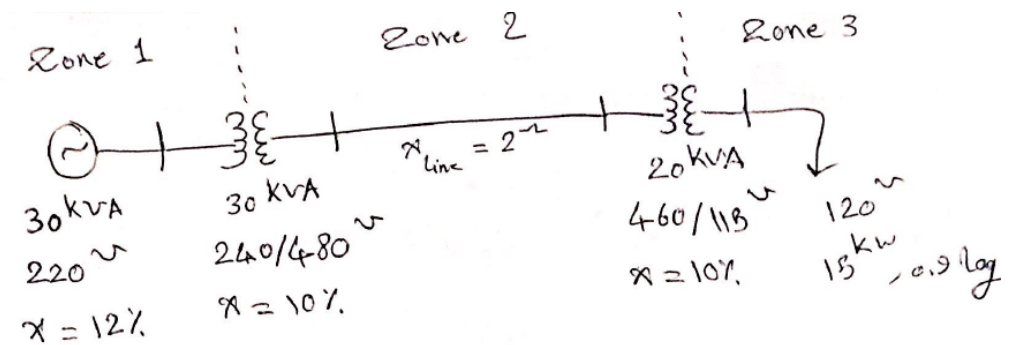 Zone 1
Zone 2
Zone 3
x line = 2 Ω
30 KVA
220 v
x = 12%
30 KVA
240/480 v
x = 10%
20 KVA
460/115 v
x = 10%
120 v
15 kw, 0.9 lag